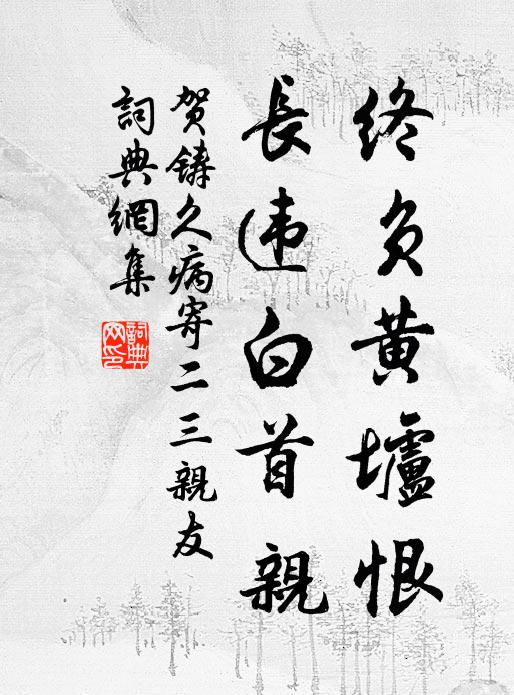 终负黄壚恨
長违白首親
贺鑄久病寄二三親友
詞典網集
詞典网印